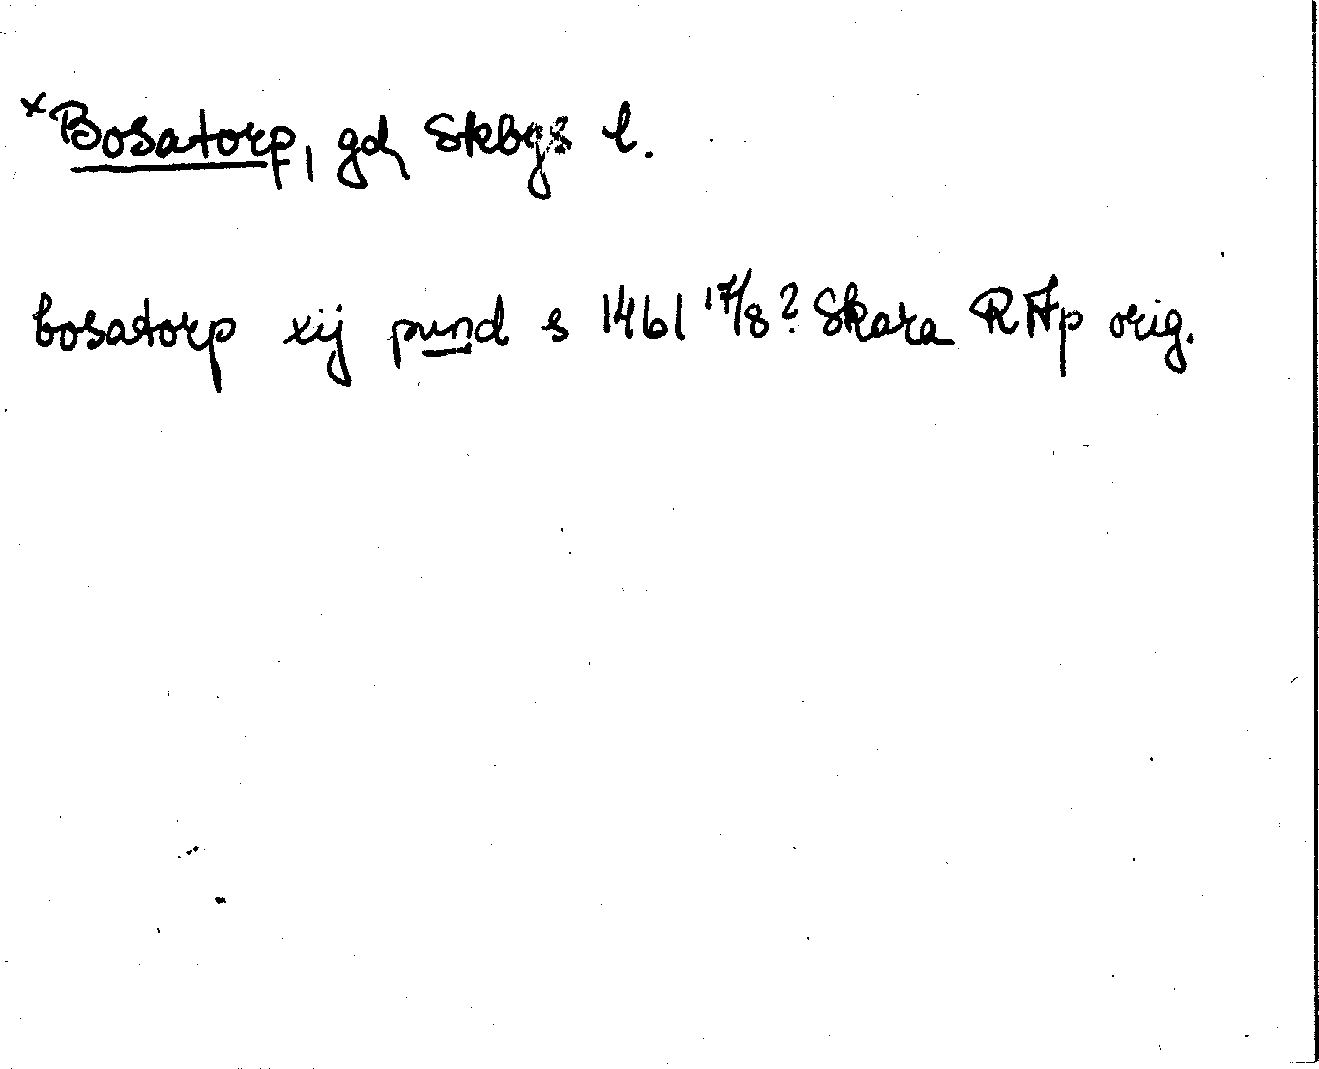 ×Bosatorp, gd, Skbgs l.
bosatorp xij pund s 1461 17/8? Skara RAp orig.